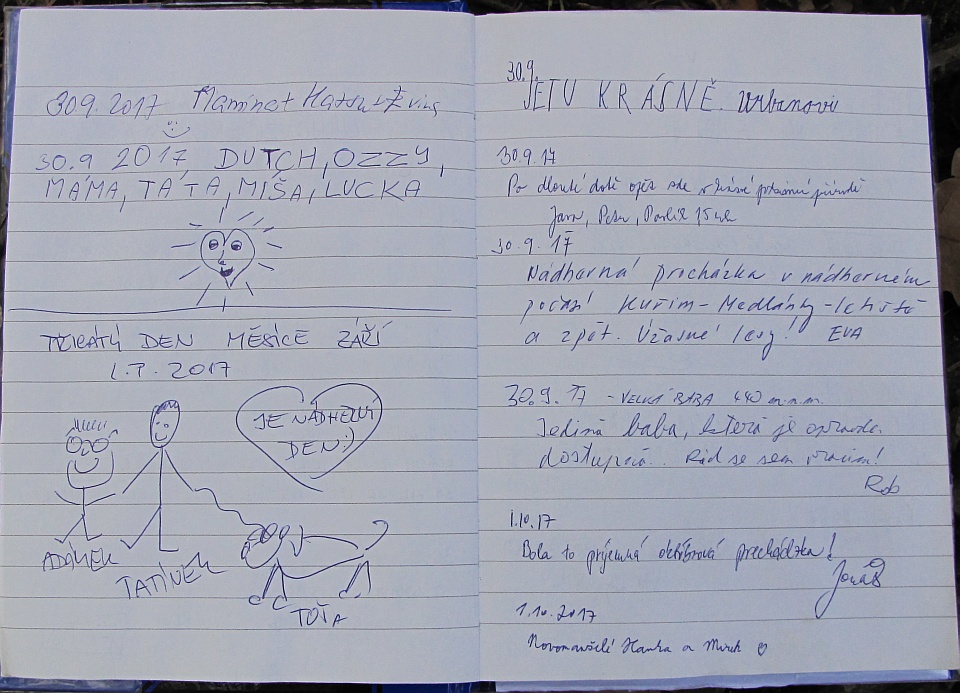 309.2017
30.9 2017 DUTCH, OZZY,
MÁMA, TÁTA, MIŠA, LUCKA
DEN MĚSÍCE ZÁŘÍ
2017
JE NÁDHERNÝ
DEN:)
ADÁMEK
TATÍNEK
TOŤA
30.9.
JE TU KRÁSNĚ. Urbanovi
30.9.17
Po dlouhé době opět zde v krásné přírodě
Petr, 15
30.9.17
Nádherná procházka v nádherném
počasí Kuřim-Medlánky-lehátě
a zpět. Úžasné lesy! EVA
30.9.17 - VELKÁ BABA 440 m.n.m.
Jediná baba, která je opravdu
dostupná.. Rád se sem vracím!
Rob
1.10.17
Bola to príjemná októbrová prechádzka!
Jonáš
1.10.2017
Novomanželé Hanka a Mirek